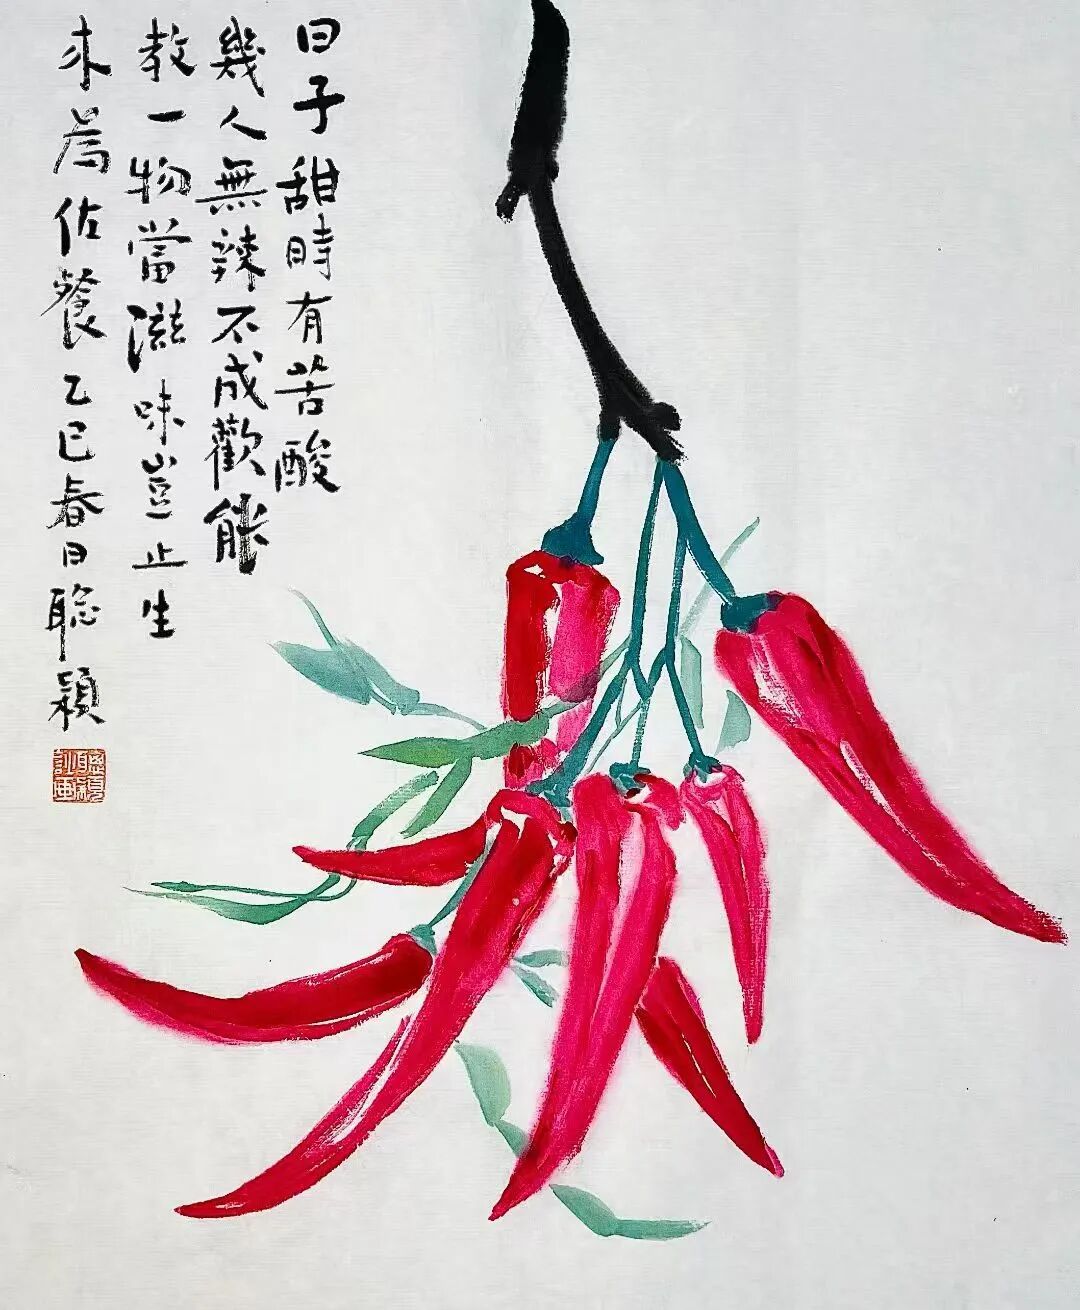 日子甜時有苦酸
幾人無辣不成歡能
教一物當滋味豈止生
來為佐餐乙巳春日聪穎